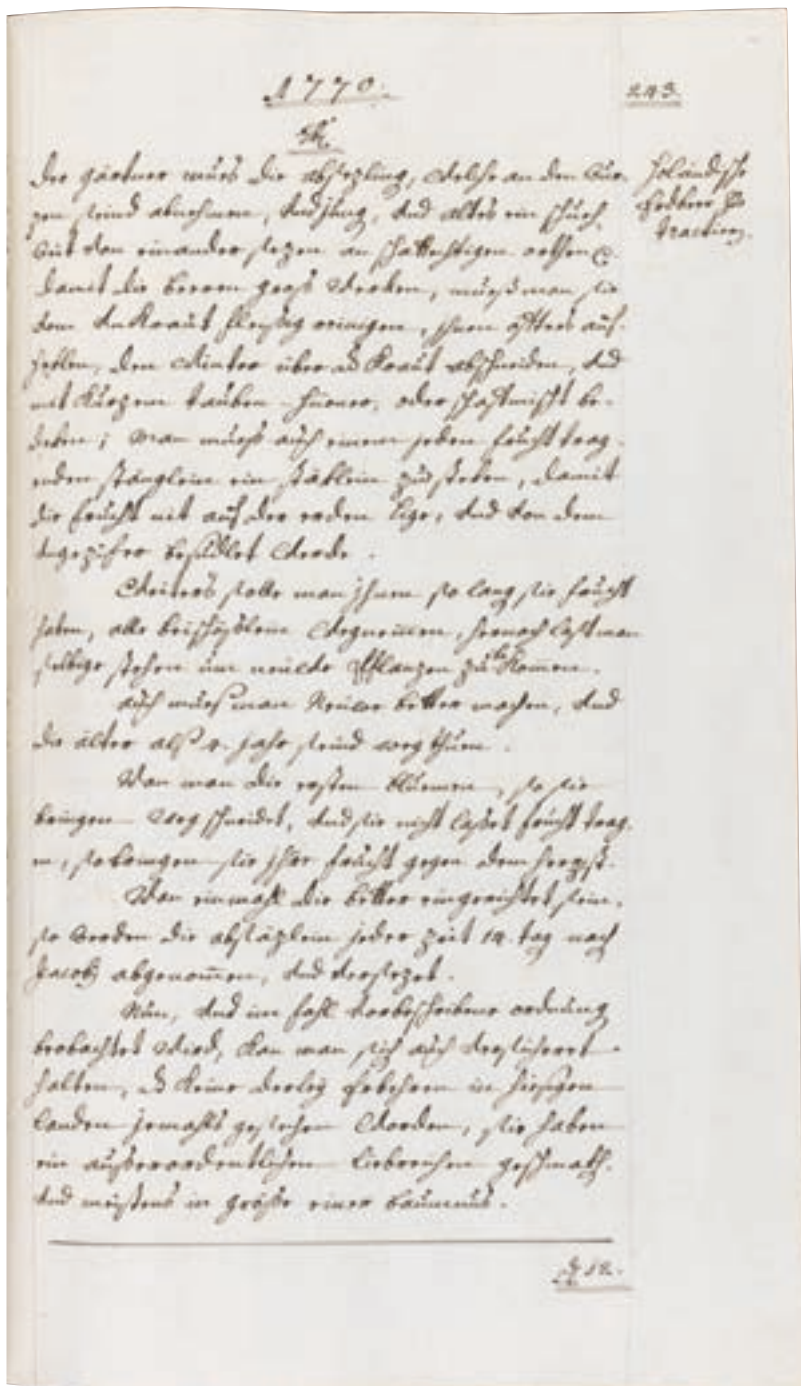 1770.
243.
Holändische
Erdbeer zu
tractieren.
Der gärtner mues die absezling, welche an den Cur-
zen seind abnehmen, undjung, und altes ein schuch
aus von einander sezen an schattechtigen orthen
damit die beeren gross werden, muesd man sie
vom unkraut fleysig reinigen, ihnen öffters auf-
helffen, den winter über das Kraut abschneiden, und
mit Kurzem tauben hüener, oder schafmist be-
deken; man mues auch einem jeden frücht trag-
enden stänglein ein stäklein zuosteken, damit
die frücht nit auf der erden lige, und von dem
ungezifer besudlet werde.
Weiters solle man ihnen so lang sie frücht
haben, alle beischößlein wegnemmen, hernach last man
selbige stehen um neüwe Pflanzen zu bekomen.
auch mues man Neüwe better machen, und
die älter alß 4. jahr seind weg thuen.
Wan man die ersten bluemen, so sie
bringen weg schneidet, und sie nicht lasset frücht trag-
en, so bringen sie ihre frücht gegen dem herpst.
Wan einmahl die better eingerichtet sein,
so werden die absäzlein jeder zeit 14. tag nach
Jacobi abgenommen, und versezet.
Nun, und im fahl vorbeschribene ordnung
beobachtet wird, kan man sich auch versicheret
halten, das keine derley erbehren in hiesigen
landen jemahls gesechen worden, sie haben
ein ausserordentlichen lieblichen geschmakh
und meistens in grösse einer baumnus.
12.